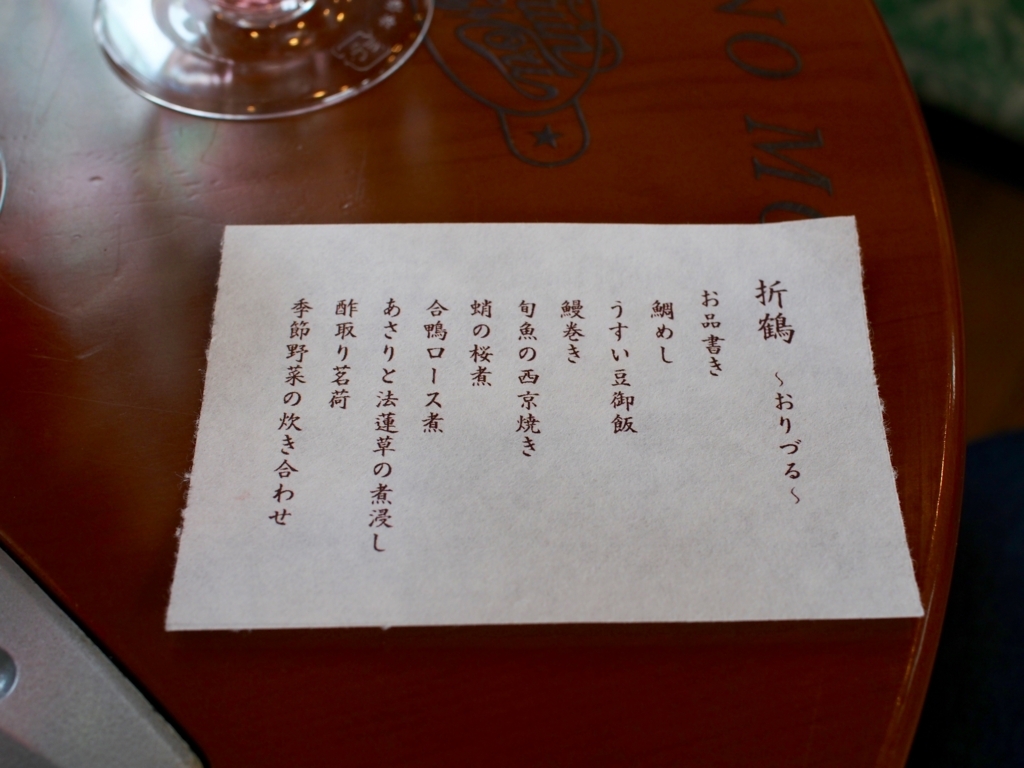 折鶴 ～おりづる～
お品書き
鯛めし
うすい豆御飯
鰻巻き
旬魚の西京焼き
蛸の桜煮
合鴨ロース煮
あさりと法蓮草の煮浸し
酢取り茗荷
季節野菜の炊き合わせ
NO MO